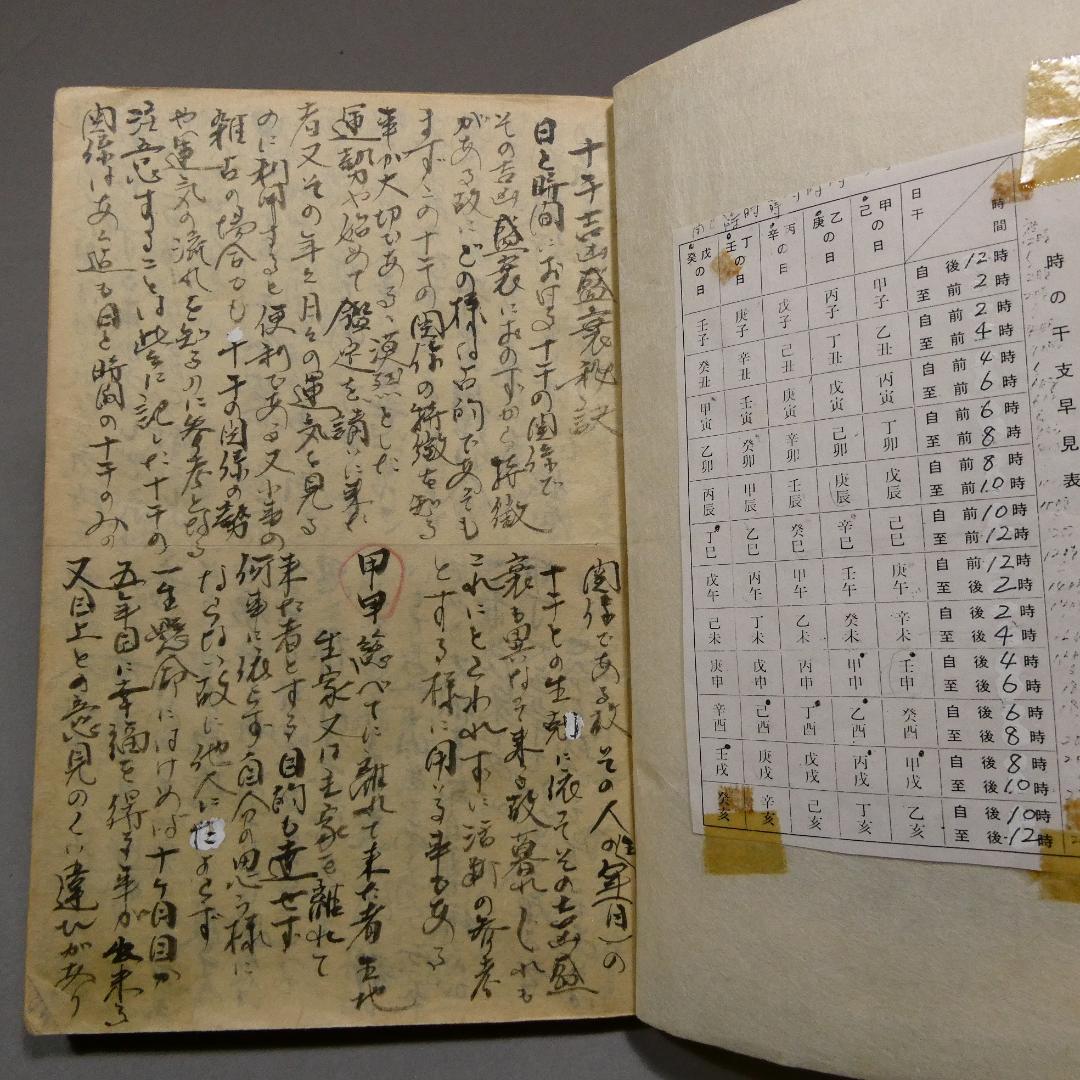 十干吉凶盛衰秘訣
日と時間における十干の関係で
その吉凶盛衰におのずから特徴
がある故にどの様な占的であつても
まずこの十干の関係の特徴を知る
事が大切である、漠然とした
運勢や始めて鑑定を請いに来た
者又その年々月々の運気を見る
のに利用すると便利である又小事の
雑占の場合でも十干の関係の勢
や運気の流れを知るのに参考となる
注意することは此処に記した十干の
関係はあく迄も日と時間の十干のみの
関係である故その人の(生年月)の
十干との生剋に依つてその吉凶盛
衰も異なつて来る故暮れぐれも
これにとらわれずに活断の参考
とする様に用いる事もある
甲甲 総べてに離れて来た者 生地
生家又は主家を離れて
来た者とする 目的も達せず
何事に依らず自分の思う様に
ならない故に他人に たよらず
一生懸命にはげめば十ケ月目か
五年目に幸福を得る事が出来る
又目上との意見のくい違ひがあり
時の干支早見表
時間
日干
甲己の日
乙庚の日
丙辛の日
丁壬の日
戊癸の日
自後12時 至前2時 甲子 丙子 戊子 庚子 壬子
自前2時 至前4時 乙丑 丁丑 己丑 辛丑 癸丑
自前4時 至前6時 丙寅 戊寅 庚寅 壬寅 甲寅
自前6時 至前8時 丁卯 己卯 辛卯 癸卯 乙卯
自前8時 至前10時 戊辰 庚辰 壬辰 甲辰 丙辰
自前10時 至前12時 己巳 辛巳 癸巳 乙巳 丁巳
自前12時 至後2時 庚午 壬午 甲午 丙午 戊午
自後2時 至後4時 辛未 癸未 乙未 丁未 己未
自後4時 至後6時 壬申 甲申 丙申 戊申 庚申
自後6時 至後8時 癸酉 乙酉 丁酉 己酉 辛酉
自後8時 至後10時 甲戌 丙戌 戊戌 庚戌 壬戌
自後10時 至後12時 乙亥 丁亥 己亥 辛亥 癸亥